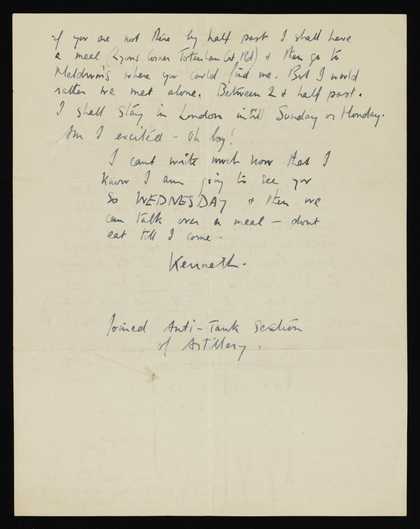 if you are not there by half past I shall have
a meal (Lyons Corner Tottenham Crt. Rd) & then go to
where you could find me. But I would
rather we met alone. Between 2 & half past.
I shall stay in London until Sunday or Monday.
Am I excited – oh boy!
I cant write much now that I
know I am going to see you
So WEDNESDAY & then we
can talk over a meal – dont
eat till I come.
Kenneth.
Joined Anti-Tank Section
of Artillery.